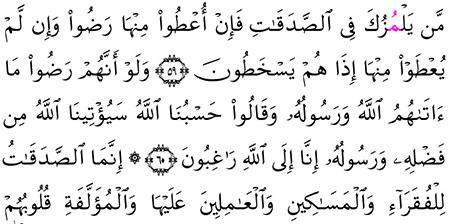 مَّن يَلْمِزُكَ فِى ٱلصَّدَقَٰتِ فَإِنْ أُعْطُوا۟ مِنْهَا رَضُوا۟ وَإِن لَّمْ
يُعْطَوْا۟ مِنْهَا إِذَا هُمْ يَسْخَطُونَ ٥٩ وَلَوْ أَنَّهُمْ رَضُوا۟ مَا
ءَاتَىٰهُمُ ٱللَّهُ وَرَسُولُهُۥ وَقَالُوا۟ حَسْبُنَا ٱللَّهُ سَيُؤْتِينَا ٱللَّهُ مِن
فَضْلِهِۦ وَرَسُولُهُۥٓ إِنَّآ إِلَى ٱللَّهِ رَٰغِبُونَ ٦٠ ۞ إِنَّمَا ٱلصَّدَقَٰتُ
لِلْفُقَرَآءِ وَٱلْمَسَٰكِينِ وَٱلْعَٰمِلِينَ عَلَيْهَا وَٱلْمُؤَلَّفَةِ قُلُوبُهُمْ